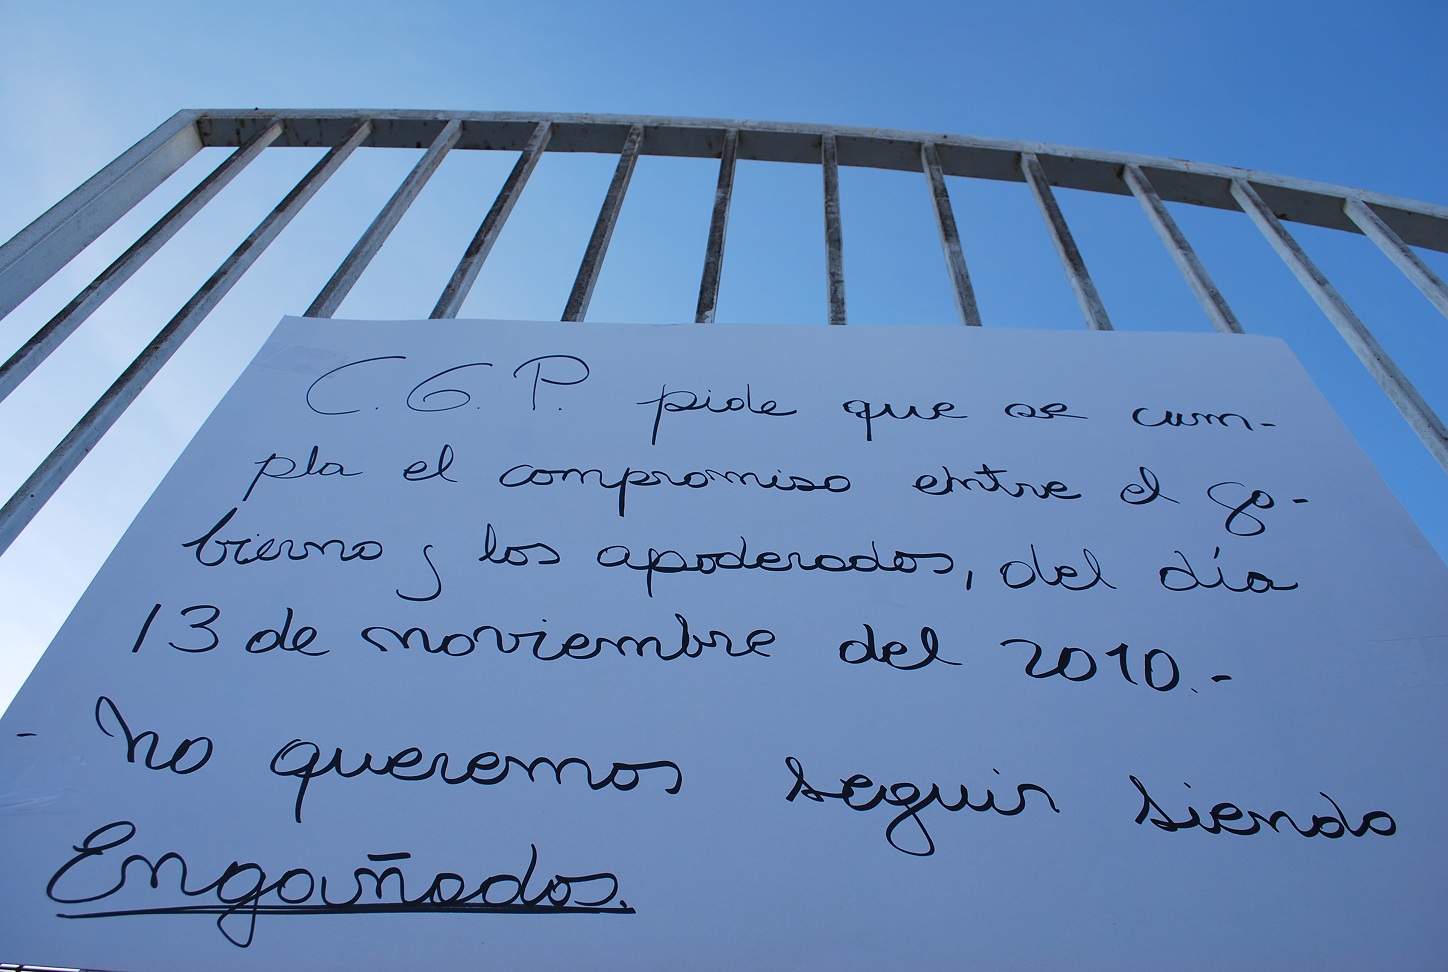 C.G.P. pide que se cum-
pla el compromiso entre el go-
bierno y los apoderados, del día
13 de noviembre del 2010.-
- No queremos seguir siendo
Engañados.